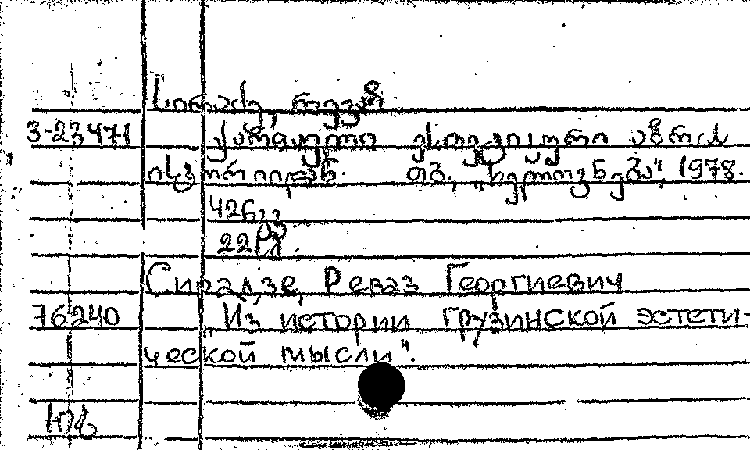 სირაძე, რევაზ
3-23471 ქართული ესთეტიკური აზრის
ისტორიიდან. თბ., "ხელოვნება", 1978.
426
22
Сирадзе, Реваз Георгиевич
76240 "Из истории грузинской эстети-
ческой мысли".